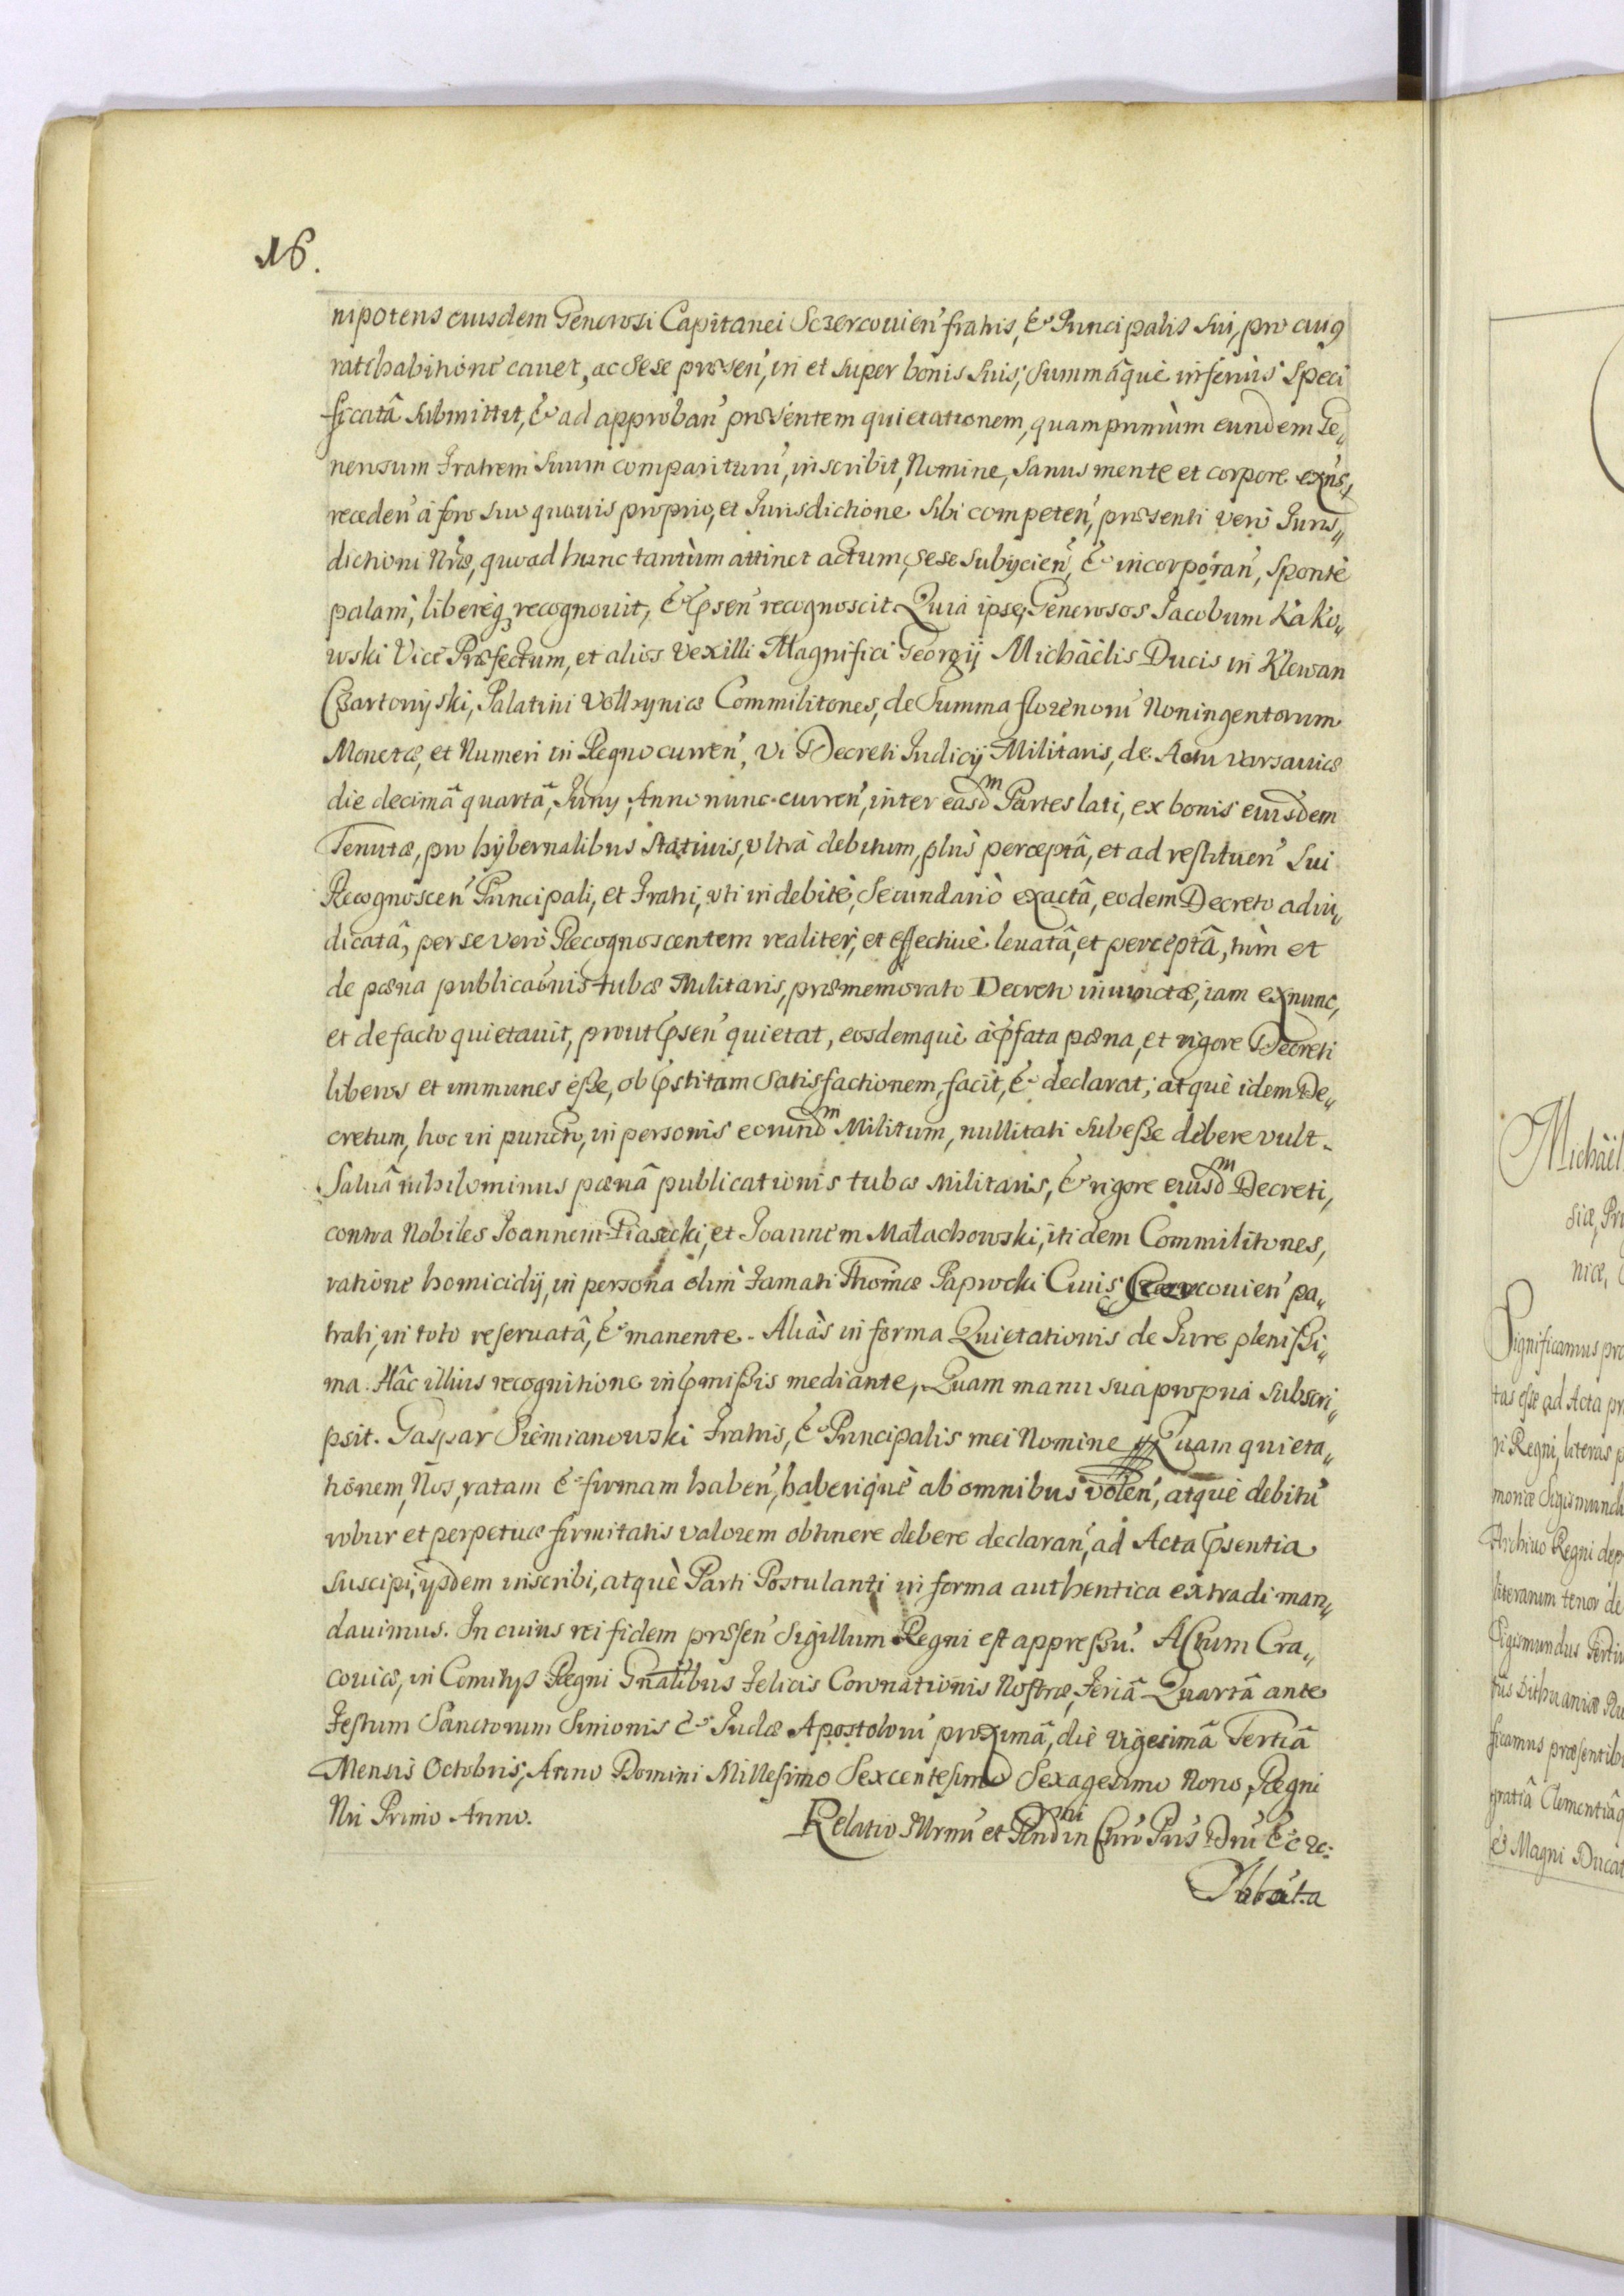 16.
nipotens eiusdem Generosi Capitanei Sczercouien̄ fratris, & Principalis sui, pro cuig
ratihabitione cauet, ac sese præsen̄, in et super bonis suis, summâque inferiùs speci
ficatâ submittit, & ad approban̄ præsentem quietationem, quamprimùm eundem Ge„
nerosum Fratrem suum compariturū, inscribit, Nomine, sanus mente et corpore exn̄s,
receden̄ à foro suo quouis proprio, et Jurisdictione sibi competen̄, præsenti verò Juris„
dictioni Nr̄æ, quoad hunc tantùm attinet actum, sese subijcien̄, & incorporan̄, sponte
palam, libereq; recognouit, & p̄sen̄ recognoscit. Quia ipse, Generosos Jacobum Kako„
wski Vice Præfectum, et alios Vexilli Magnifici Georgij Michäelis Ducis in Klewan
Czartoryiski, Palatini Volhyniæ Commilitones, de summa florenorū Noningentorum
Monetæ, et Numeri in Regno curren̄, vi Decreti Judicij Militaris, de Actu Varsauiæ
die decimâ quartâ, Juny, Anno nunc curren̄, inter easdm Partes lati, ex bonis eiusdem
Tenutæ, pro hybernalibus statiuis, vltrà debitum, plùs perceptâ, et ad restituen̄ sui
Recognoscen̄ Principali, et Fratri, vti indebitè, secundariò exactâ, eodem Decreto adiu„
dicatâ, per se verò Recognoscentem realiter, et effectiuè leuatâ, et perceptâ, tùm et
de pæna publicaōnis tubæ Militaris, præmemorato Decreto iniunctæ, iam exnunc,
et de facto quietauit, prout p̄sen̄ quietat, eosdemquè à p̄fata pæna, et rigore Decreti
liberos et immunes eße, ob p̄stitam satisfactionem, facit, & declarat; atquè idem De„
cretum, hoc in puncto, in personis eorundm Militum, nullitati subeße debere vult.
Saluâ nihilominus pænâ publicationis tubæ Militaris, & rigore eiusdm Decreti,
contra Nobiles Joannem Piasecki, et Joannem Małachowski, itidem Commilitones,
ratione homicidij, in persona olim Famati Thomæ Paprocki Ciuis Szczercouien̄ pa„
trati, in toto reseruatâ, & manente. Aliàs in forma Quietationis de Jure plenißi„
ma. Hâc illius recognitione in p̄mißis mediante, Quam manu sua propria subscri„
psit. Gaspar Siemianowski Fratris, & Principalis mei Nomine Quam quieta„
tionem, Nos, ratam & firmam haben̄, haberiquè ab omnibus volen̄, atquè debitū
robur et perpetuæ firmitatis valorem obtinere debere declaran̄, ad Acta p̄sentia
suscipi, ijsdem inscribi, atquè Parti Postulanti in forma authentica extradi man„
dauimus. In cuius rei fidem præsen̄ Sigillum Regni est appreßū. Actum Cra„
couiæ, in Comitijs Regni Gn̄alibus Felicis Coronationis Nostræ, Feriâ Quartâ ante
Festum Sanctorum Simonis & Judæ Apostolorū proximâ, die Vigesimâ Tertiâ
Mensis Octobris, Anno Domini Millesimo Sexcentesimo Sexagesimo Nono, Regni
Nri Primo Anno.
Relatio Illrmi et Rndmi in Chro Pris Dni &c &c: